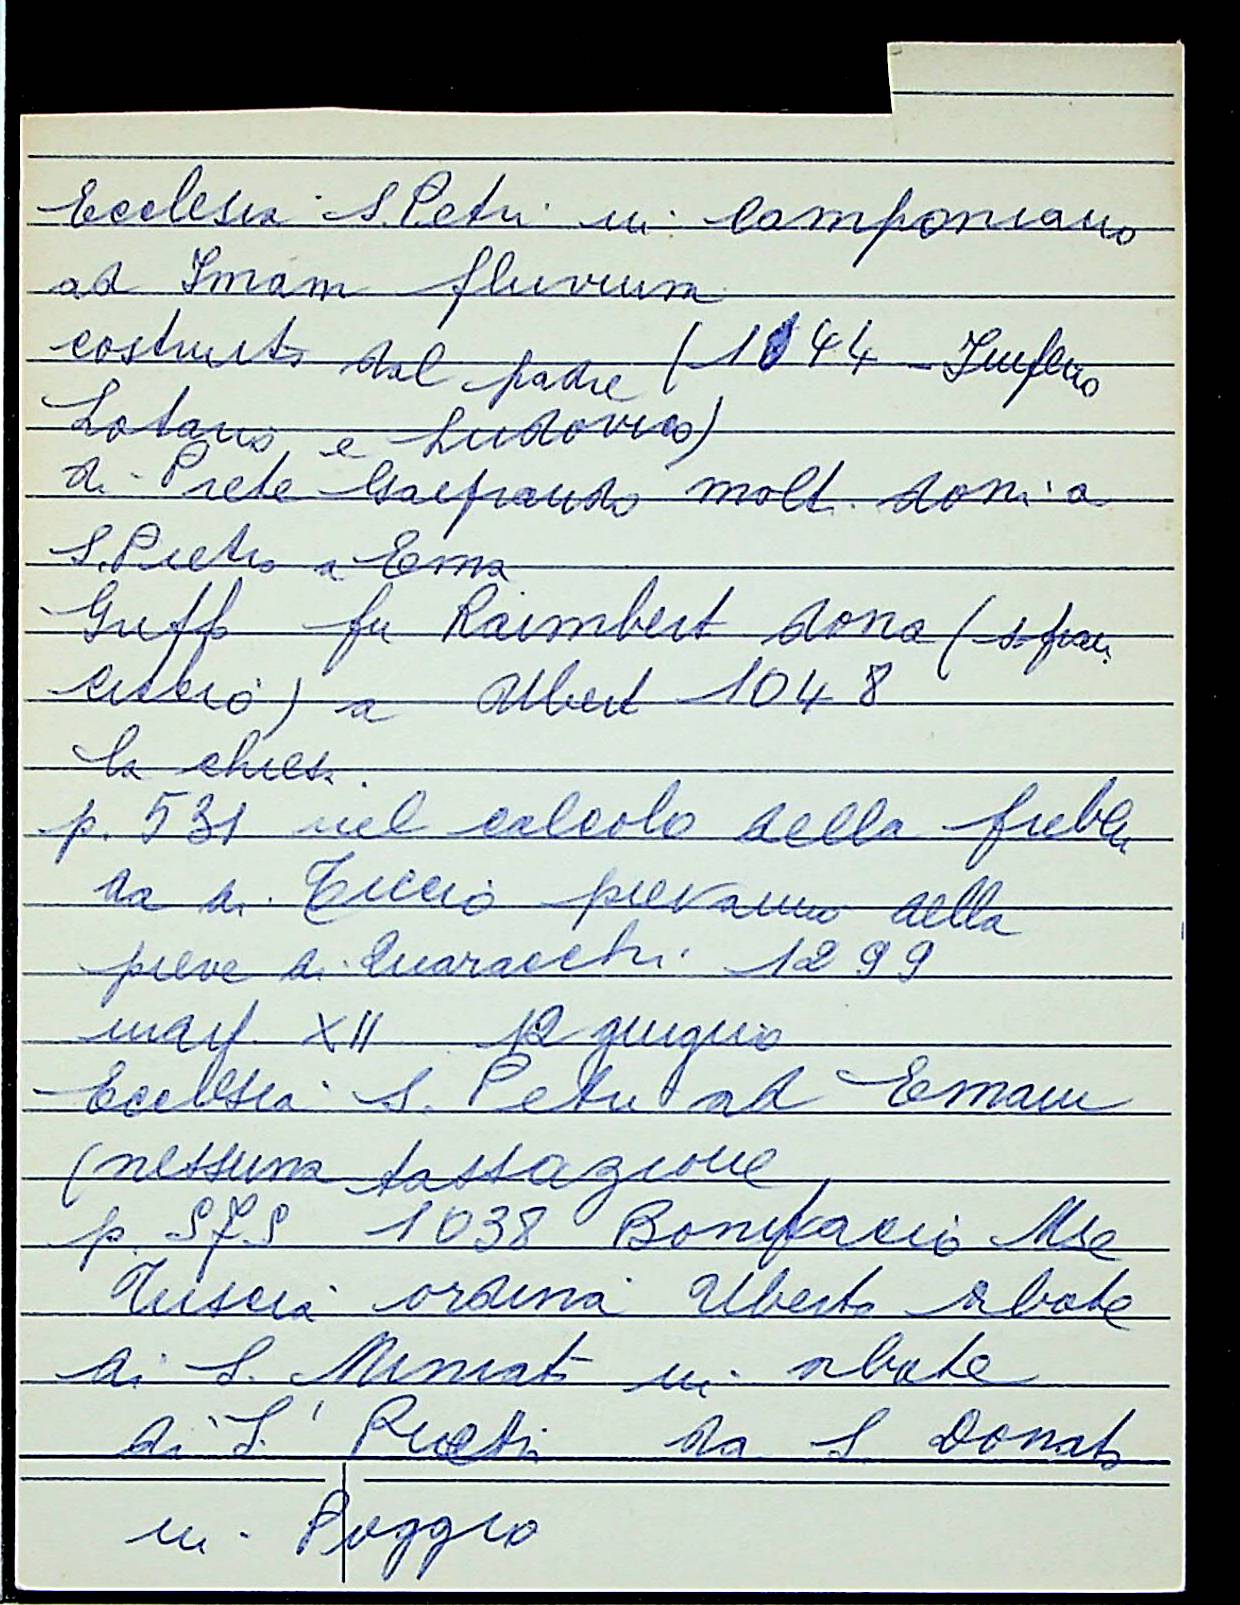 Ecclesia S. Petri in Camponiano
ad Imam fluvium
costruita dal padre (1044
Lotario e Ludovico)
di Prete molt. doni a
S. Pietro a Ema
fu Raimbert dona (
) a Ubert 1048
la chiesa
p. 531 nel calcolo della
da di Ticcio pievano della
pieve di Quaracchi 1299
XII 12 giugno
Ecclesia S. Petri ad Emam
(nessuna tassazione
p. 1038 Bonifacio Mse
Tuscia ordina Uberto abate
di S. Miniato in abate
di S. Pietro da S. Donato
in Poggio